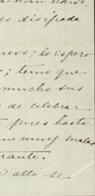 es disipada
nuevo; lo espero
; temo que
mucho sus
de celebrar
pues hasta
muy malas
rante.
allá se